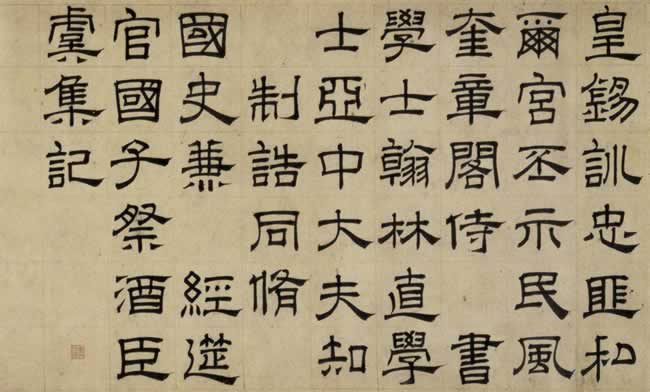 皇錫訓忠匪私
爾宮丕示民風
奎章閣侍書
學士翰林直學
士亞中大夫知
制誥同脩
國史兼經筵
官國子祭酒臣
虞集記